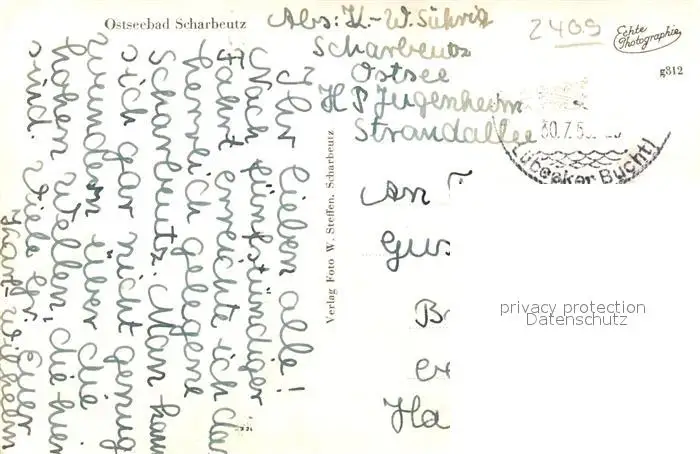 Ostseebad Scharbeutz
Abs: K.-W. Sührig
Scharbeutz
Ostsee
H P Jugenheim
Strandallee
2409
Echte
Photographie
g312
30.7.5
Lübecker Bucht)
Ihr lieben alle!
Nach fünfstündiger
Fahrt erreichte ich das
herrlich gelegene
Scharbeutz. Man kann
sich gar nicht genug
wundern über die
hohen Wellen, die hier
sind. Viele Gr. Euer
Karl-Wilhelm
Verlag Foto W. Steffen, Scharbeutz
An
Gus
B
Ha
privacy protection
Datenschutz